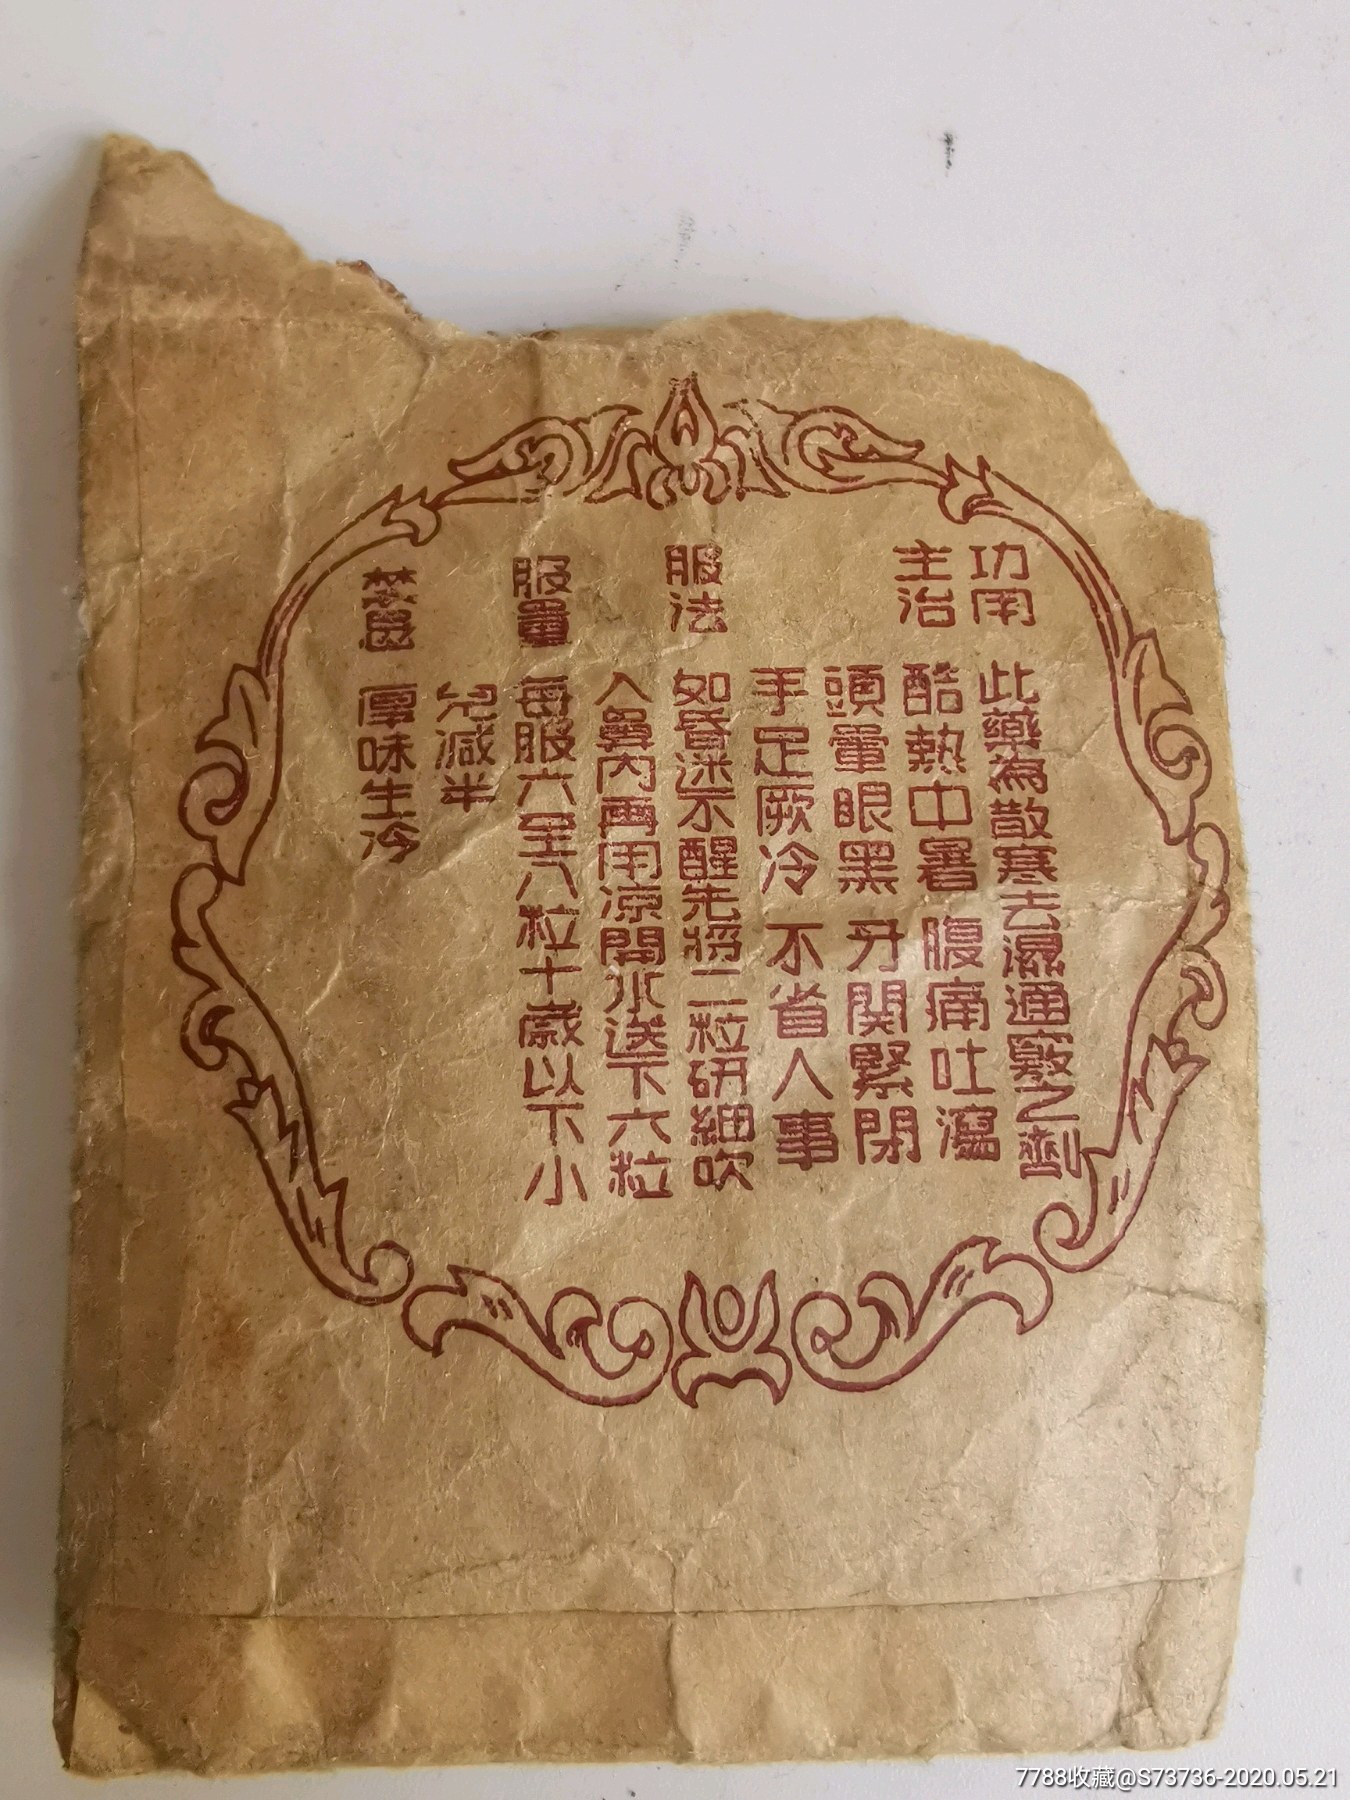 功用 此藥為散寒去濕通竅之劑
主治 酷熱中暑 腹痛吐瀉
頭暈眼黑 牙關緊閉
手足厥冷 不省人事
服法 如昏迷不醒先將二粒研細吹
入鼻內再用涼開水送下六粒
服量 每服六至八粒十歲以下小
兒減半
禁忌 厚味生冷
7788收藏@S73736-2020.05.21